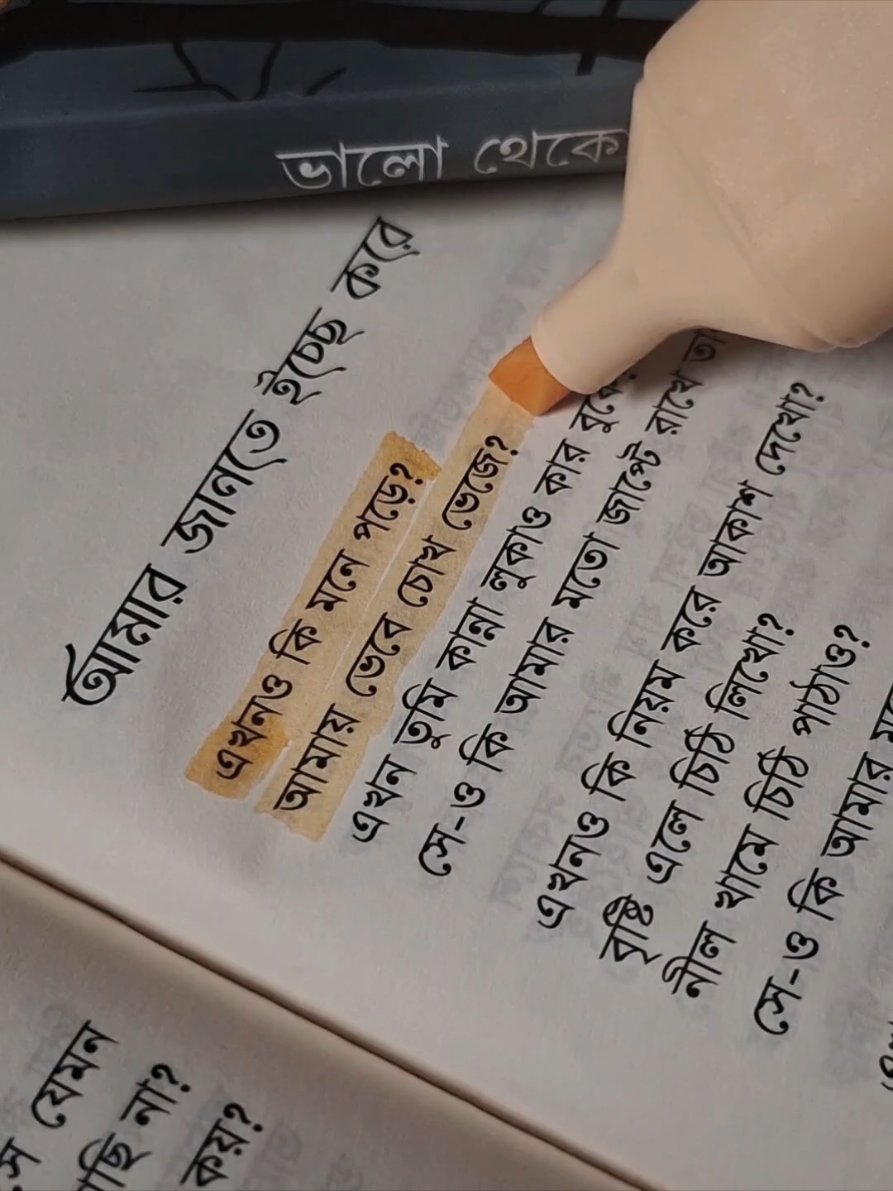 ভালো থেকো
আমার জানতে ইচ্ছে করে
এখনও কি মনে পড়ে?
আমায় ভেবে চোখ ভেজে?
এখন তুমি কান্না লুকাও কার বুকে?
সে-ও কি আমার মতো জাপ্টে রাখে
এখনও কি নিয়ম করে আকাশ দেখো?
বৃষ্টি এলে চিঠি লিখো?
নীল খামে চিঠি পাঠাও?
সে-ও কি আমার
যেমন
না?
কয়?